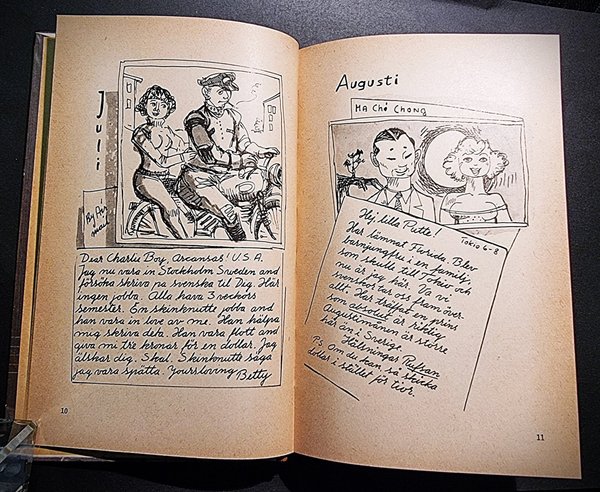 Juli
By Air
mail
Dear Charlie Boy, Arcansas! U.S.A.
Jag nu vara in Stockholm Sweden and
försöka skriva på svenska til Dig. Här
ingen jobba. Alla hava 3 veckors
semester. En skinknutte jobba and
han vara in love av me. Han hälpa
mig skriva deta. Han vara flott and
giva mi tre kronor för en dollar. Jag
älskar dig. Skal. Skinknutte säga
jag vara spätta. Yoursloving Betty
10
Augusti
MA Ché Chong
Hej lilla Putte! Tokio 6-8
Har lämnat Florida. Blev
barnjungfru i en familj,
som skulle till Tokio och
nu är jag här. Va vi
svenskor tar oss fram över-
allt. Har träffat en prins
som absolut är riktig
Augustimånen är större
här än i Sverige.
Hälsningar Ruffsan
PS Om du kan så skicka
dollar i stället för tior.
11